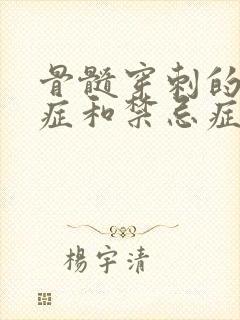 骨髓穿刺的
症和禁忌症
楊宇清